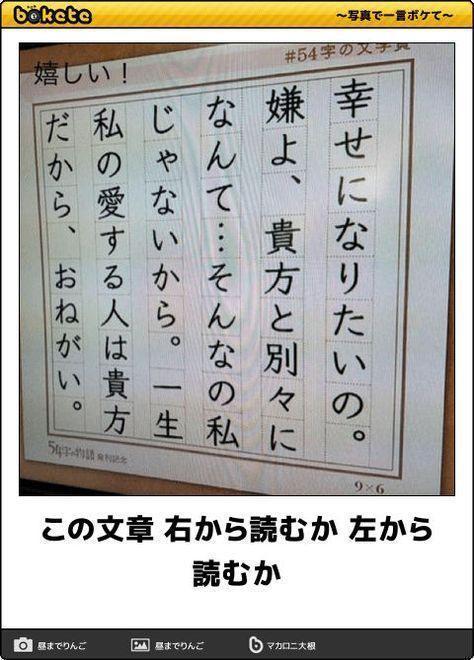 bokete
〜写真で一言ボケて〜
#54字の文学賞
嬉しい！
幸せになりたいの。
嫌よ、貴方と別々に
なんて…そんなの私
じゃないから。一生
私の愛する人は貴方
だから、おねがい。
54字の物語 発刊記念
9×6
この文章 右から読むか 左から
読むか
昼までりんご
昼までりんご
マカロニ大根